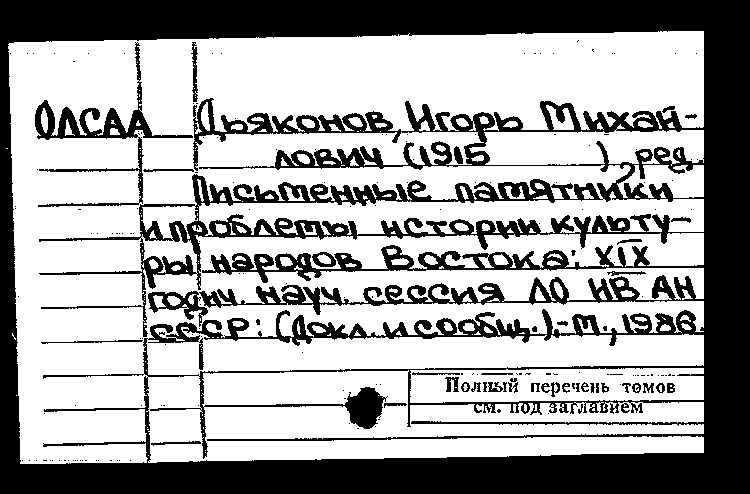 ОЛСАА Дьяконов, Игорь Михай-
лович (1915 ), ред.
Письменные памятники
и проблемы истории культу-
ры народов Востока: XIX
годич. науч. сессия ЛО ИВ АН
СССР: (Докл. и сообщ.).-М., 1986.
Полный перечень томов
см. под заглавием